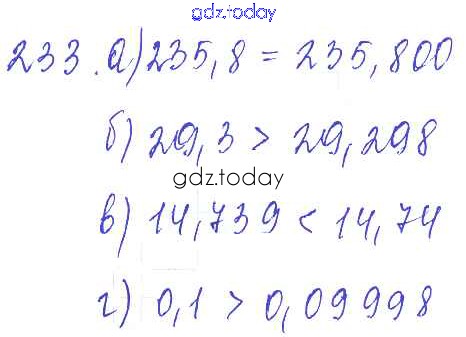 gdz.today
233. а) 235,8 = 235,800
б) 29,3 > 29,298
gdz.today
в) 14,739 < 14,74
г) 0,1 > 0,09998